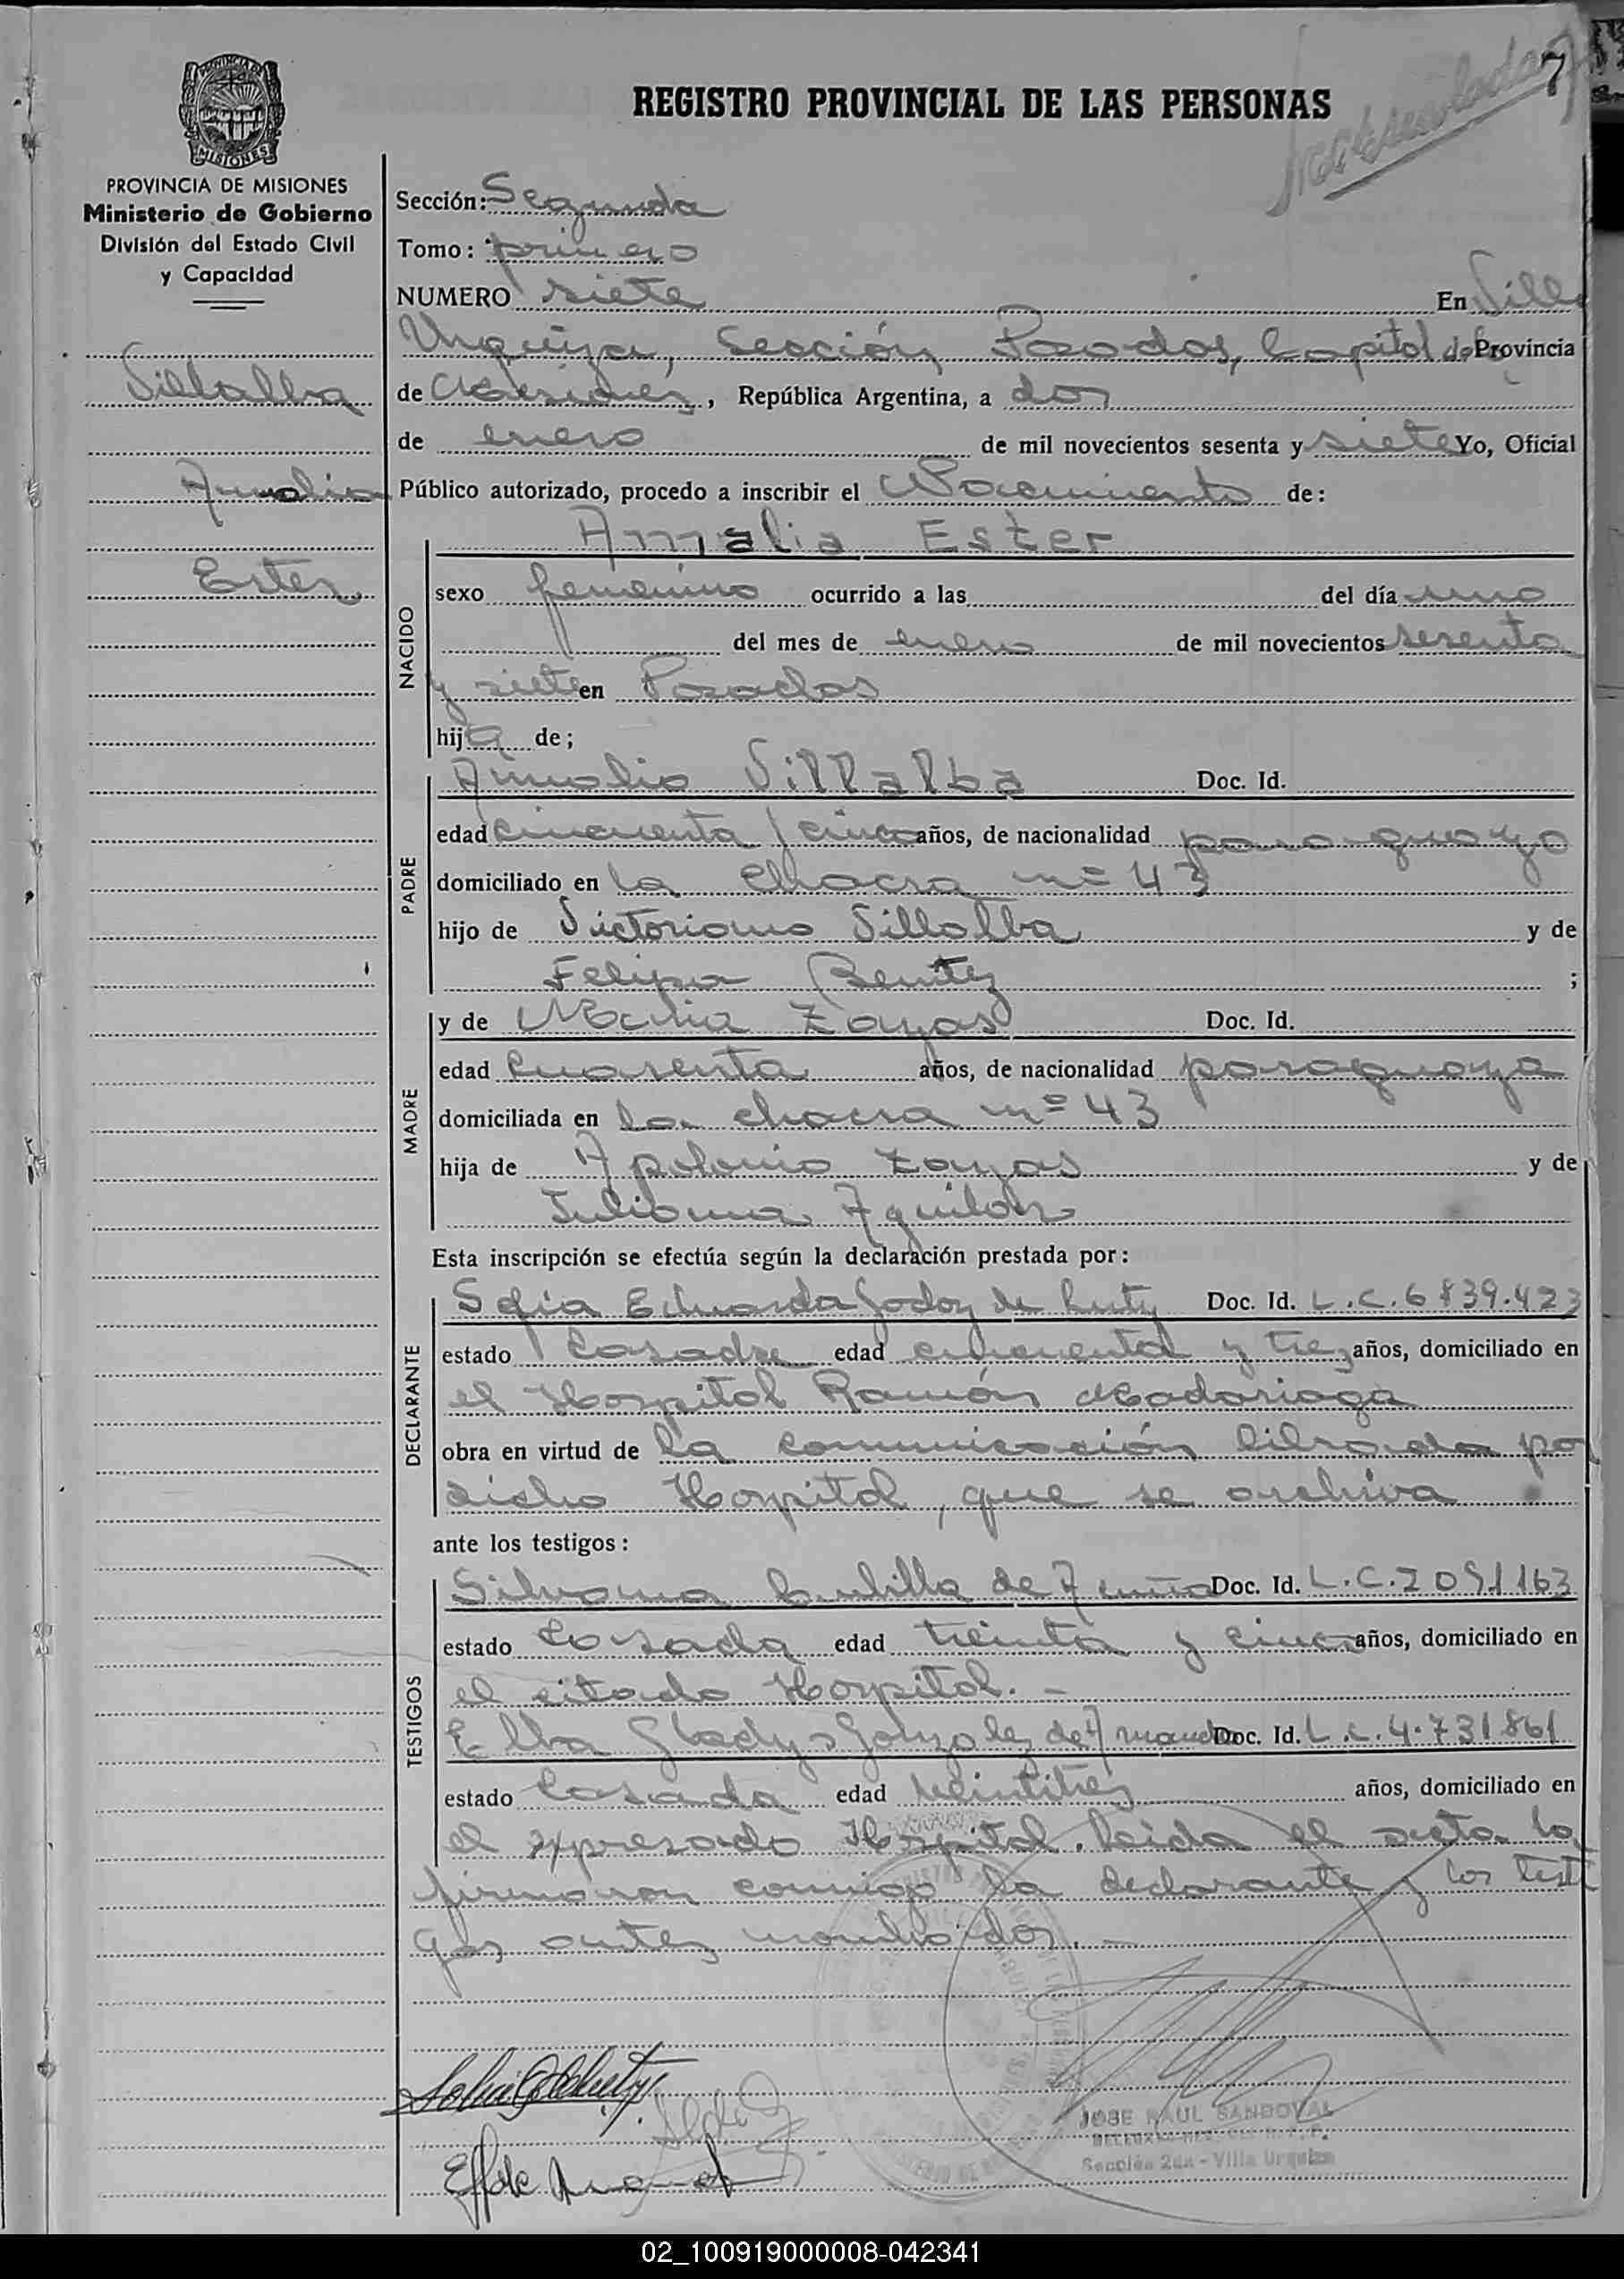 7
REGISTRO PROVINCIAL DE LAS PERSONAS
PROVINCIA DE MISIONES
MISIONES
PROVINCIA DE MISIONES
Ministerio de Gobierno
División del Estado Civil
y Capacidad
Villalba
Amalia
Ester
Sección: Segunda
Tomo: primero
NUMERO siete En Villa
Urquiza, Sección Posadas, Capital de la Provincia
de Misiones, República Argentina, a dos
de enero de mil novecientos sesenta y siete Yo, Oficial
Público autorizado, procedo a inscribir el Nacimiento de:
Amalia Ester
NACIDO
sexo femenino ocurrido a las del día uno
del mes de enero de mil novecientos sesenta
y siete en Posadas
hija de;
PADRE
Villalba Doc. Id.
edad cincuenta y cinco años, de nacionalidad paraguayo
domiciliado en la chacra nº 43
hijo de Victoriano Villalba y de
Felipa Benitez ;
MADRE
y de María Zayas Doc. Id.
edad Cuarenta años, de nacionalidad paraguaya
domiciliada en la chacra nº 43
hija de Apolonio Zayas y de
Juliana Aguilar
Esta inscripción se efectúa según la declaración prestada por:
DECLARANTE
Eduarda Godoy de Doc. Id. L.C. 6839.423
estado Casada edad cincuenta y tres años, domiciliado en
el Hospital Ramón Madariaga
obra en virtud de la comunicación librada por
dicho Hospital, que se archiva
ante los testigos:
TESTIGOS
Silvana de Doc. Id. L.C. 2091163
estado Casada edad treinta y cinco años, domiciliado en
el citado Hospital. -
Elba Gladys Gonzalez de Doc. Id. L.C. 4.731861
estado Casada edad veintitres años, domiciliado en
el expresado Hospital. leída el acta la
firmaron conmigo la declarante y los testi
gos antes nombrados. -
JOSE RAUL SANDOVAL
Sección 2da - Villa Urquiza
02_100919000008-042341